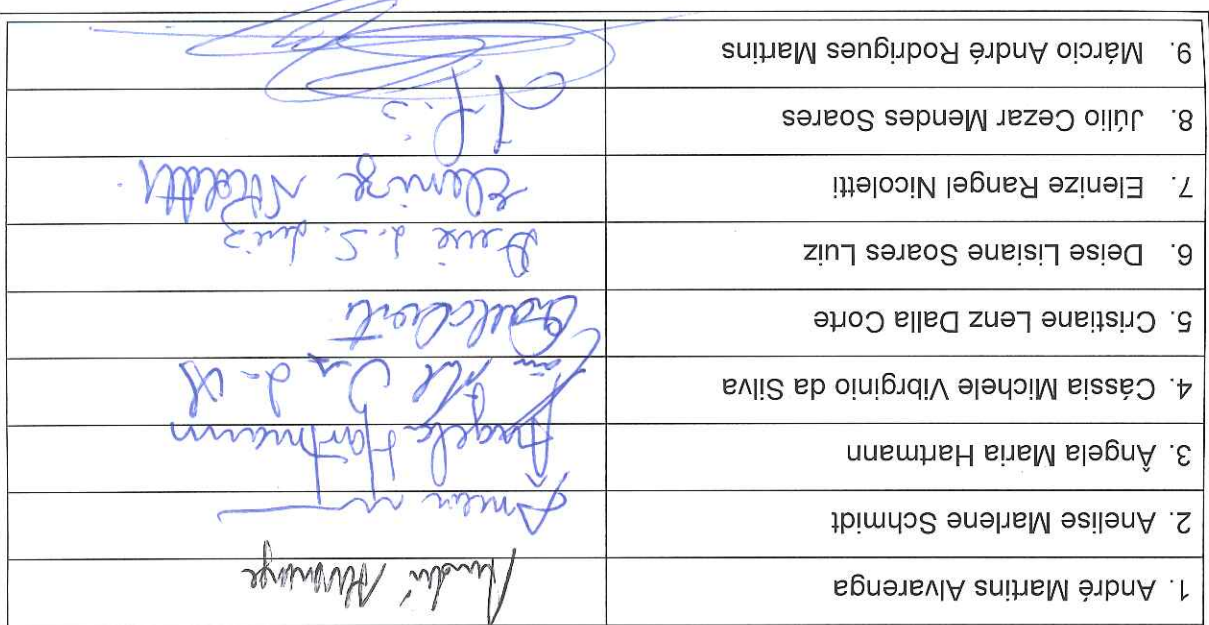 1. André Martins Alvarenga André Alvarenga
2. Anelise Marlene Schmidt
3. Ângela Maria Hartmann Ângela Hartmann
4. Cássia Michele Vibrginio da Silva
5. Cristiane Lenz Dalla Corte
6. Deise Lisiane Soares Luiz Deise L. S. Luiz
7. Elenize Rangel Nicoletti Elenize Nicoletti
8. Júlio Cezar Mendes Soares
9. Márcio André Rodrigues Martins